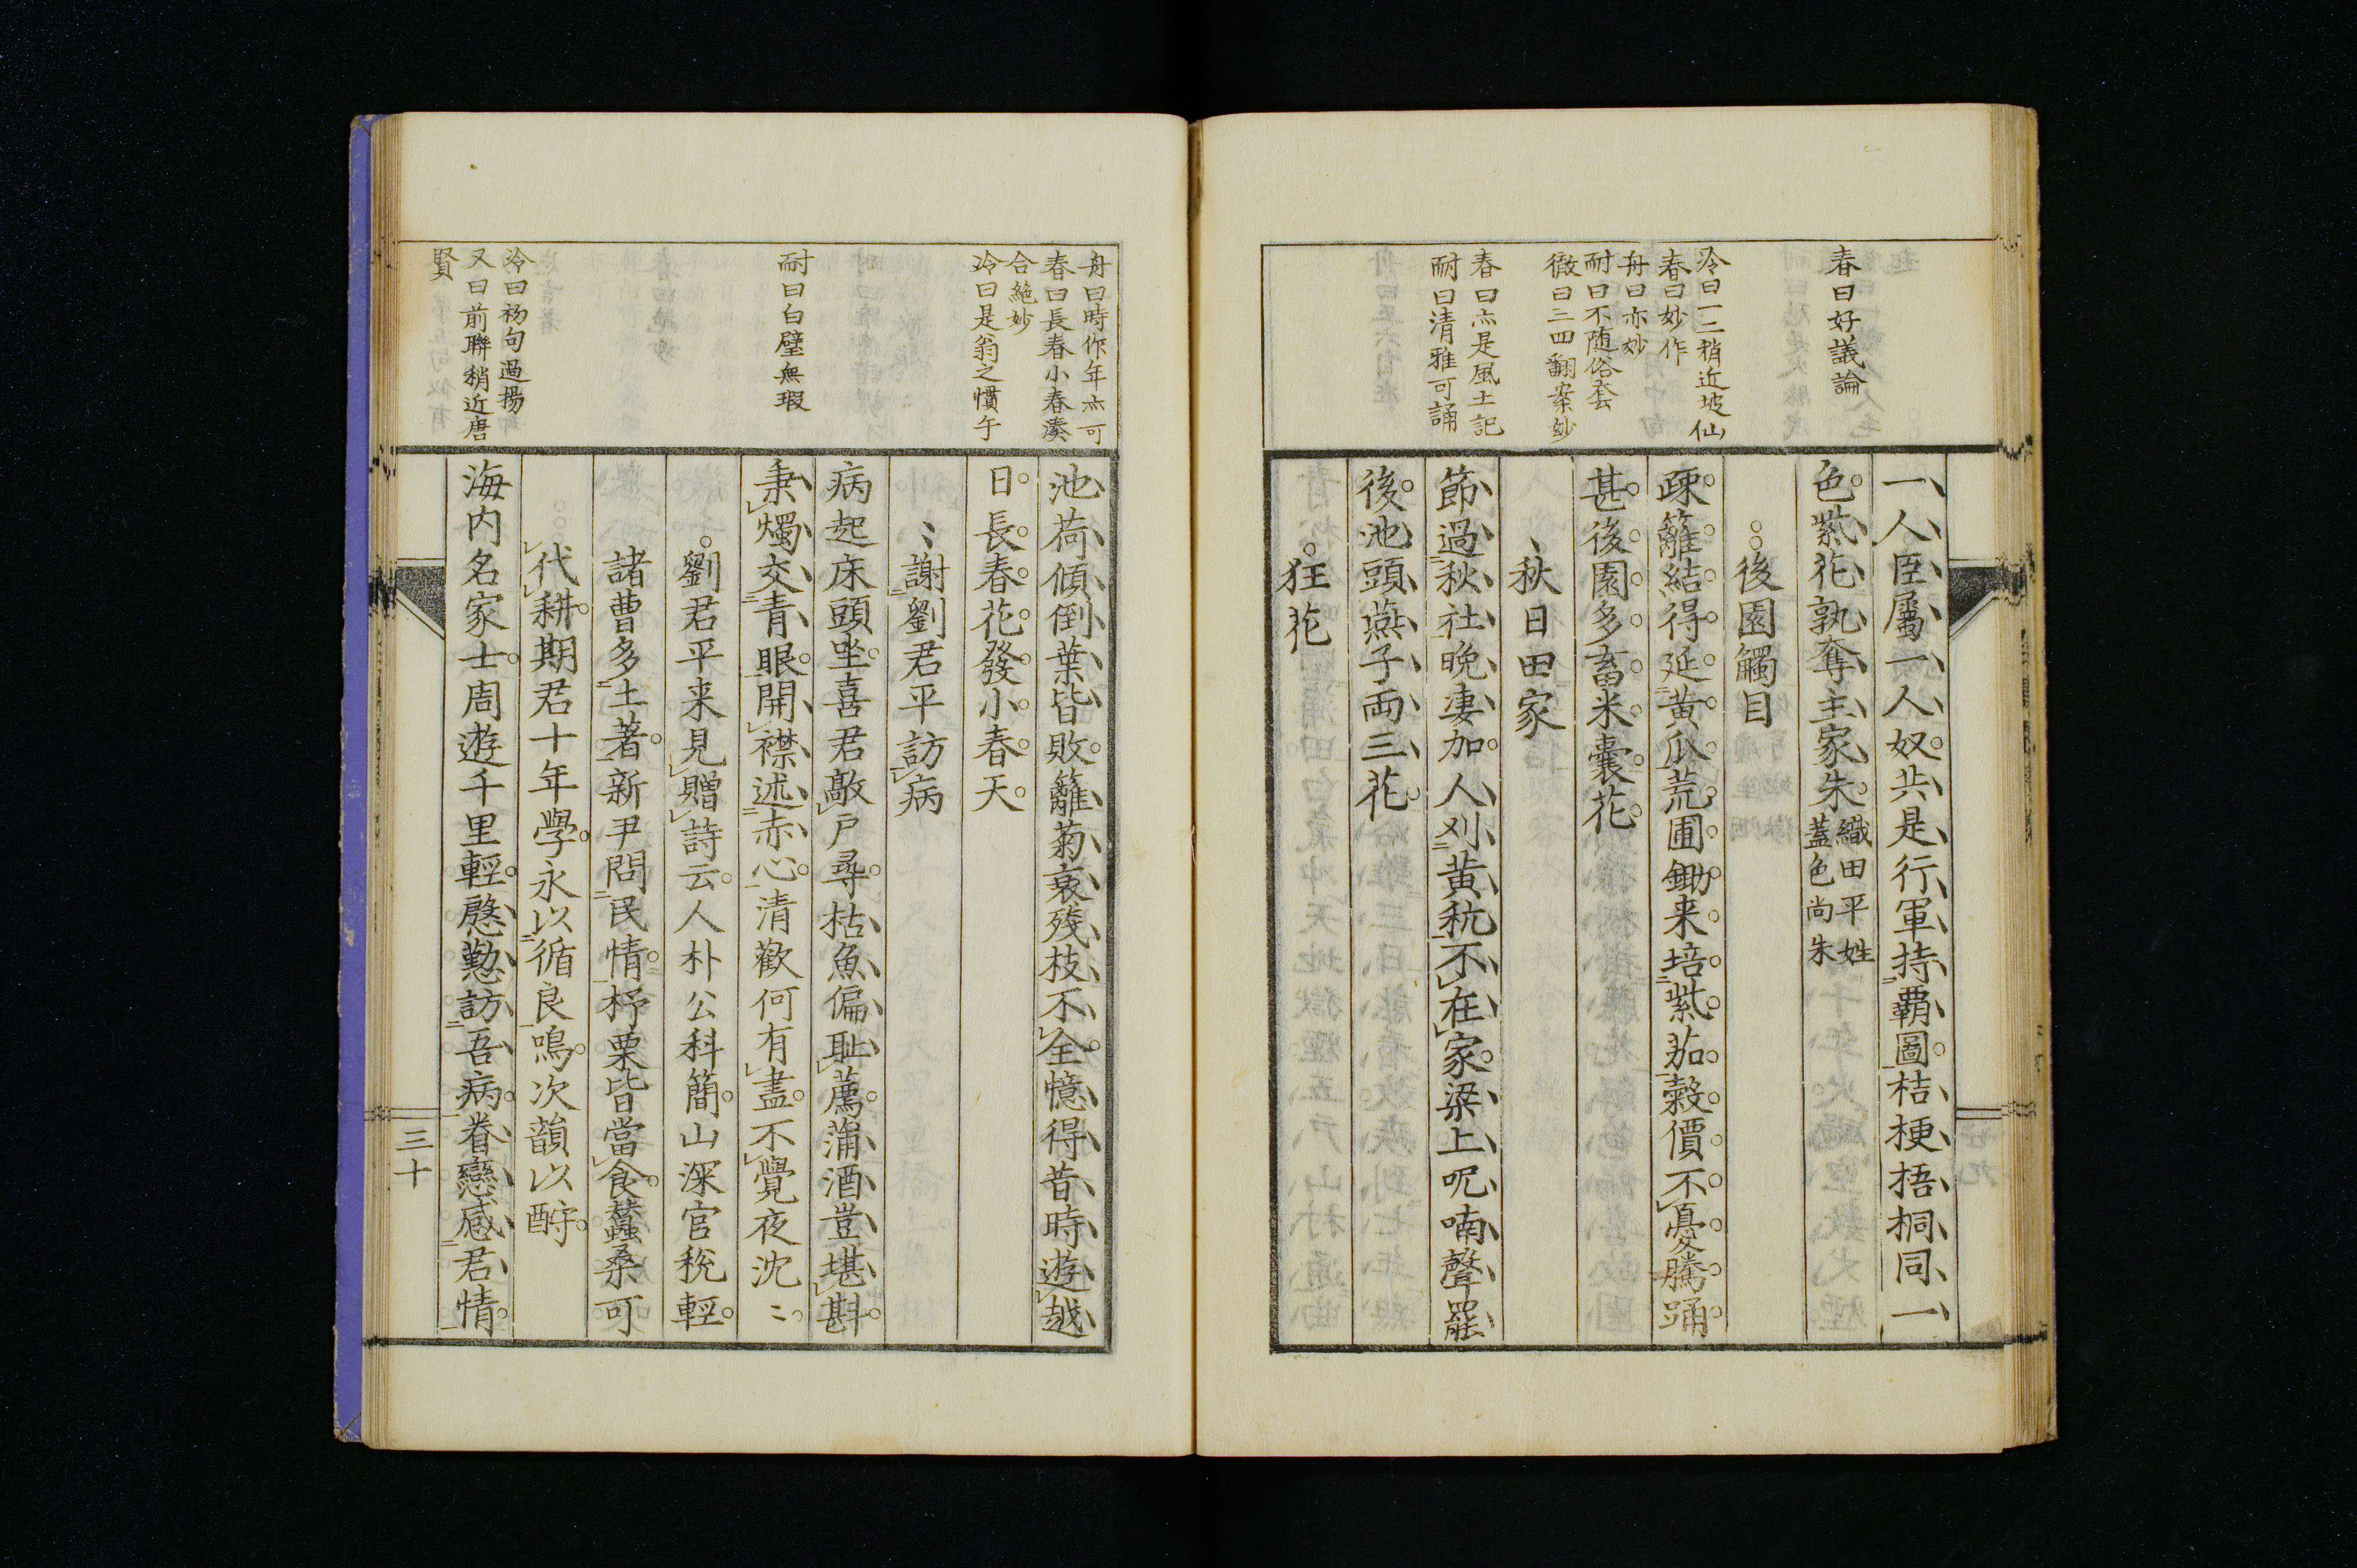 春曰好議論
冷曰一二稍近坡仙
春曰妙作
舟曰亦妙
耐曰不随俗套
微曰三四翻案妙
春曰亦是風土記
耐曰清雅可誦
一人臣屬一人奴共是行軍持覇圖桔梗梧桐同一
色紫花孰奪主家朱織田平姓蓋色尚朱
後園觸目
疎籬結得延黄瓜荒圃鋤来培紫茄穀價不憂騰踊
甚後園多畜米嚢花
秋日田家
節過秋社晩凄加人刈黄秔不在家梁上呢喃聲罷
後池頭燕子両三花
狂花
舟曰時作年亦可
春曰長春小春湊
合絶妙
冷曰是翁之慣手
耐曰白璧無瑕
冷曰初句過揚
又曰前聯稍近唐
賢
池荷傾倒葉皆敗籬菊衰残枝不全憶得昔時遊越
日長春花發小春天
謝劉君平訪病
病起床頭坐喜君敲戸尋枯魚偏耻薦蒲酒豈堪斟
秉燭交青眼開襟述赤心清歡何有盡不覺夜沈〻
劉君平来見贈詩云人朴公科簡山深官税輕
諸曹多土著新尹問民情杼栗皆當食蠶桑可
代耕期君十年學永以循良鳴次韻以酧
海内名家士周遊千里輕慇懃訪吾病眷戀感君情
三十